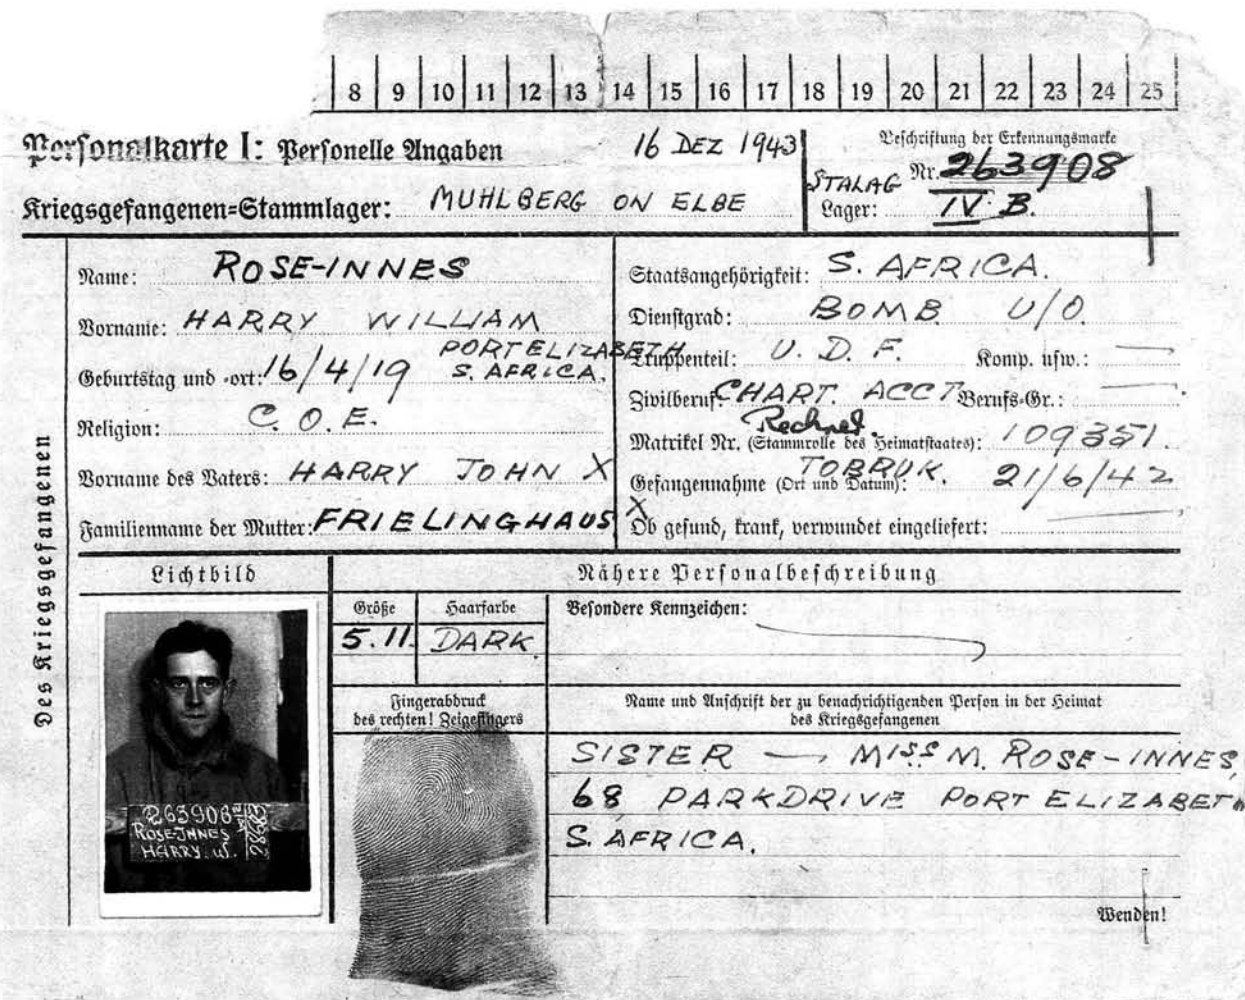 8 9 10 11 12 13 14 15 16 17 18 19 20 21 22 23 24 25
Personalkarte I: Personelle Angaben
16 DEZ 1943
Beschriftung der Erkennungsmarke
Nr. 263908
Kriegsgefangenen=Stammlager: MUHLBERG ON ELBE
STALAG
Lager: IV B.
Des Kriegsgefangenen
Name: ROSE-INNES
Vorname: HARRY WILLIAM
Geburtstag und -ort: 16/4/19 PORT ELIZABETH
S. AFRICA.
Religion: C. O. E.
Vorname des Vaters: HARRY JOHN X
Familienname der Mutter: FRIELINGHAUS
Staatsangehörigkeit: S. AFRICA.
Dienstgrad: BOMB. U/O.
Truppenteil: U. D. F. Komp. usw.:
Zivilberuf: CHART. ACCT Berufs-Gr.:
Matrikel Nr. (Stammrolle des Heimatstaates): 109351.
Gefangennahme (Ort und Datum): TOBRUK. 21/6/42
X
Ob gesund, krank, verwundet eingeliefert:
Lichtbild
Nähere Personalbeschreibung
Größe
Haarfarbe
Besondere Kennzeichen:
5.11.
DARK.
263908
ROSE-INNES
HARRY W.
Fingerabdruck
des rechten! Zeigefingers
Name und Anschrift der zu benachrichtigenden Person in der Heimat
des Kriegsgefangenen
SISTER — MISS M. ROSE-INNES,
68 PARKDRIVE PORT ELIZABETH
S. AFRICA.
Wenden!